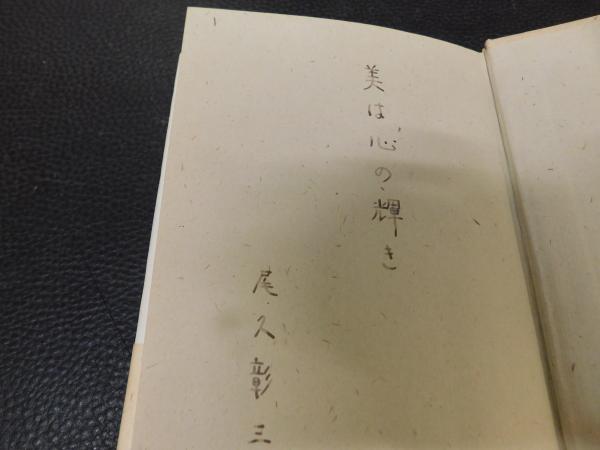 美は心の輝き
尾久彰三